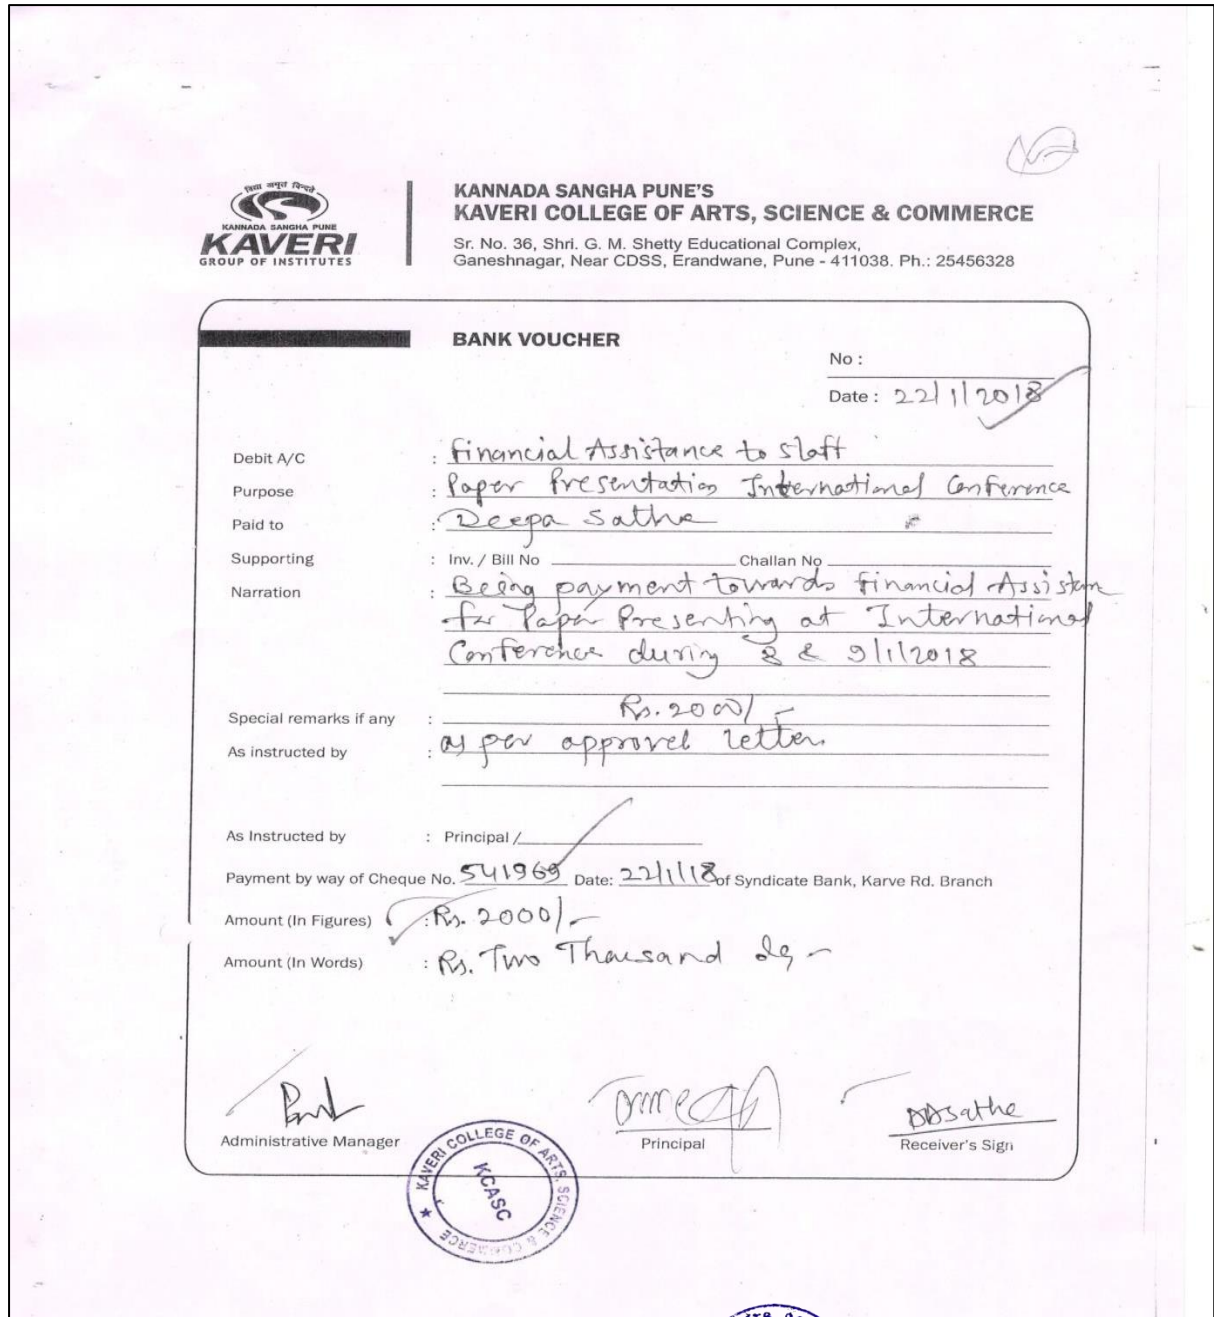 विद्या अमृतं विन्दते
KANNADA SANGHA PUNE
KAVERI
GROUP OF INSTITUTES
KANNADA SANGHA PUNE'S
KAVERI COLLEGE OF ARTS, SCIENCE & COMMERCE
Sr. No. 36, Shri. G. M. Shetty Educational Complex,
Ganeshnagar, Near CDSS, Erandwane, Pune - 411038. Ph.: 25456328
BANK VOUCHER
No :
Date : 22/1/2018
Debit A/C : Financial Assistance to Staff
Purpose : Paper Presentation International Conference
Paid to : Deepa Sathe
Supporting : Inv. / Bill No Challan No
Narration : Being payment towards Financial Assistan
for Paper Presenting at International
Conference during 8 & 9/1/2018
Rs. 2000/-
Special remarks if any :
As instructed by : as per approvel letter.
As Instructed by : Principal /
Payment by way of Cheque No. 541969 Date: 22/1/18 of Syndicate Bank, Karve Rd. Branch
Amount (In Figures) : Rs. 2000/-
Amount (In Words) : Rs. Two Thousand
DDSathe
Administrative Manager Principal Receiver's Sign
KAVERI COLLEGE OF ARTS, SCIENCE & COMMERCE
KCASC